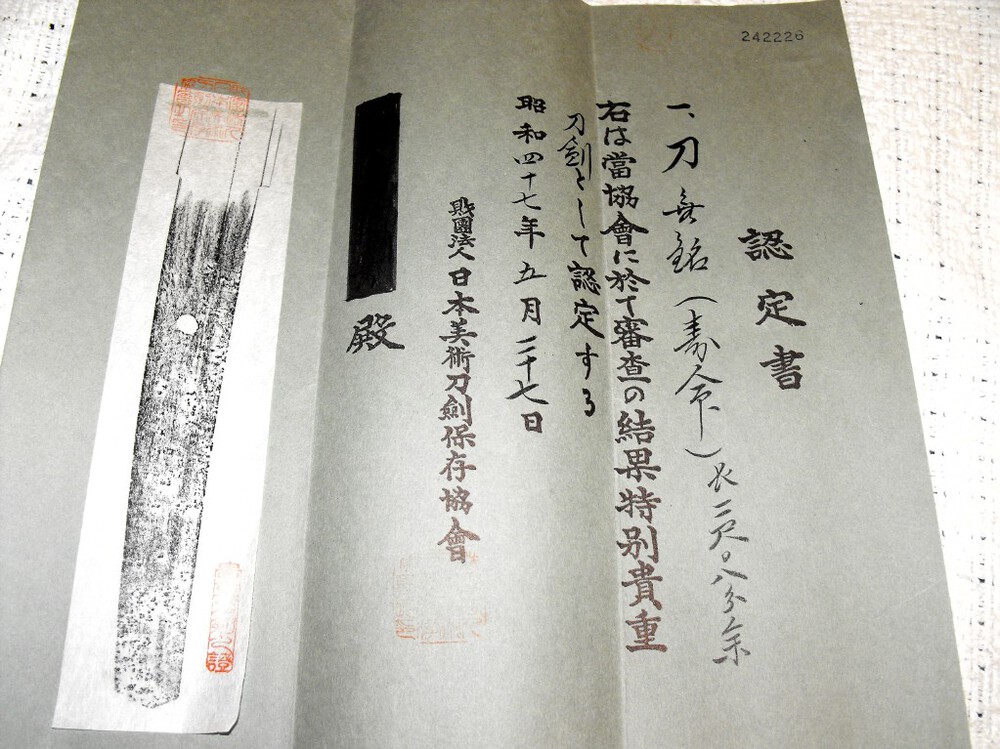 242226
認定書
一、刀 無銘(寿命)長二尺〇八分余
右は當協會に於て審査の結果特別貴重
刀劍として認定する
昭和四十七年五月二十七日
財團法人日本美術刀劍保存協會
殿